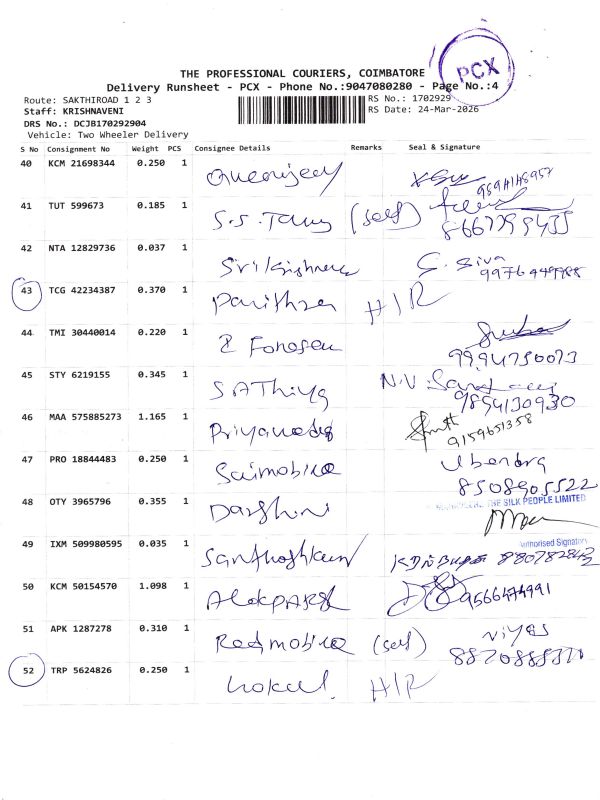 PCX
THE PROFESSIONAL COURIERS, COIMBATORE
Delivery Runsheet - PCX - Phone No.:9047080280 - Page No.:4
Route: SAKTHIROAD 1 2 3
RS No.: 1702929
Staff: KRISHNAVENI
RS Date: 24-Mar-2026
DRS No.: DCJB170292904
Vehicle: Two Wheeler Delivery
S No Consignment No Weight PCS Consignee Details Remarks Seal & Signature
40 KCM 21698344 0.250 1
41 TUT 599673 0.185 1 S.S. (self)
42 NTA 12829736 0.037 1 Srikrishna G. Siva
43 TCG 42234387 0.370 1 Panithra H/R
44 TMI 30440014 0.220 1
9994730073
45 STY 6219155 0.345 1 SAThiya N.V.
9854130930
46 MAA 575885273 1.165 1 9159651358
47 PRO 18844483 0.250 1 Saimobile Ubendra
8508905522
THE SILK PEOPLE LIMITED
48 OTY 3965796 0.355 1 Darshini
Authorised Signatory
49 IXM 509980595 0.035 1 Santhoshkumar
50 KCM 50154570 1.098 1 9566474991
51 APK 1287278 0.310 1 Redmobile (self)
52 TRP 5624826 0.250 1 Gokul H/R